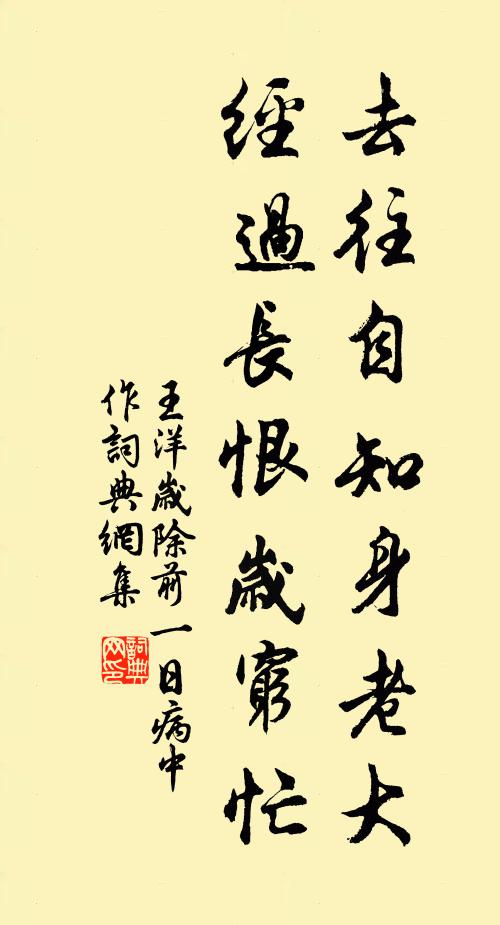 去往自知身老大
經過長恨歲窮忙
王洋歲除前一日病中
作詞典網集
詞典
网印